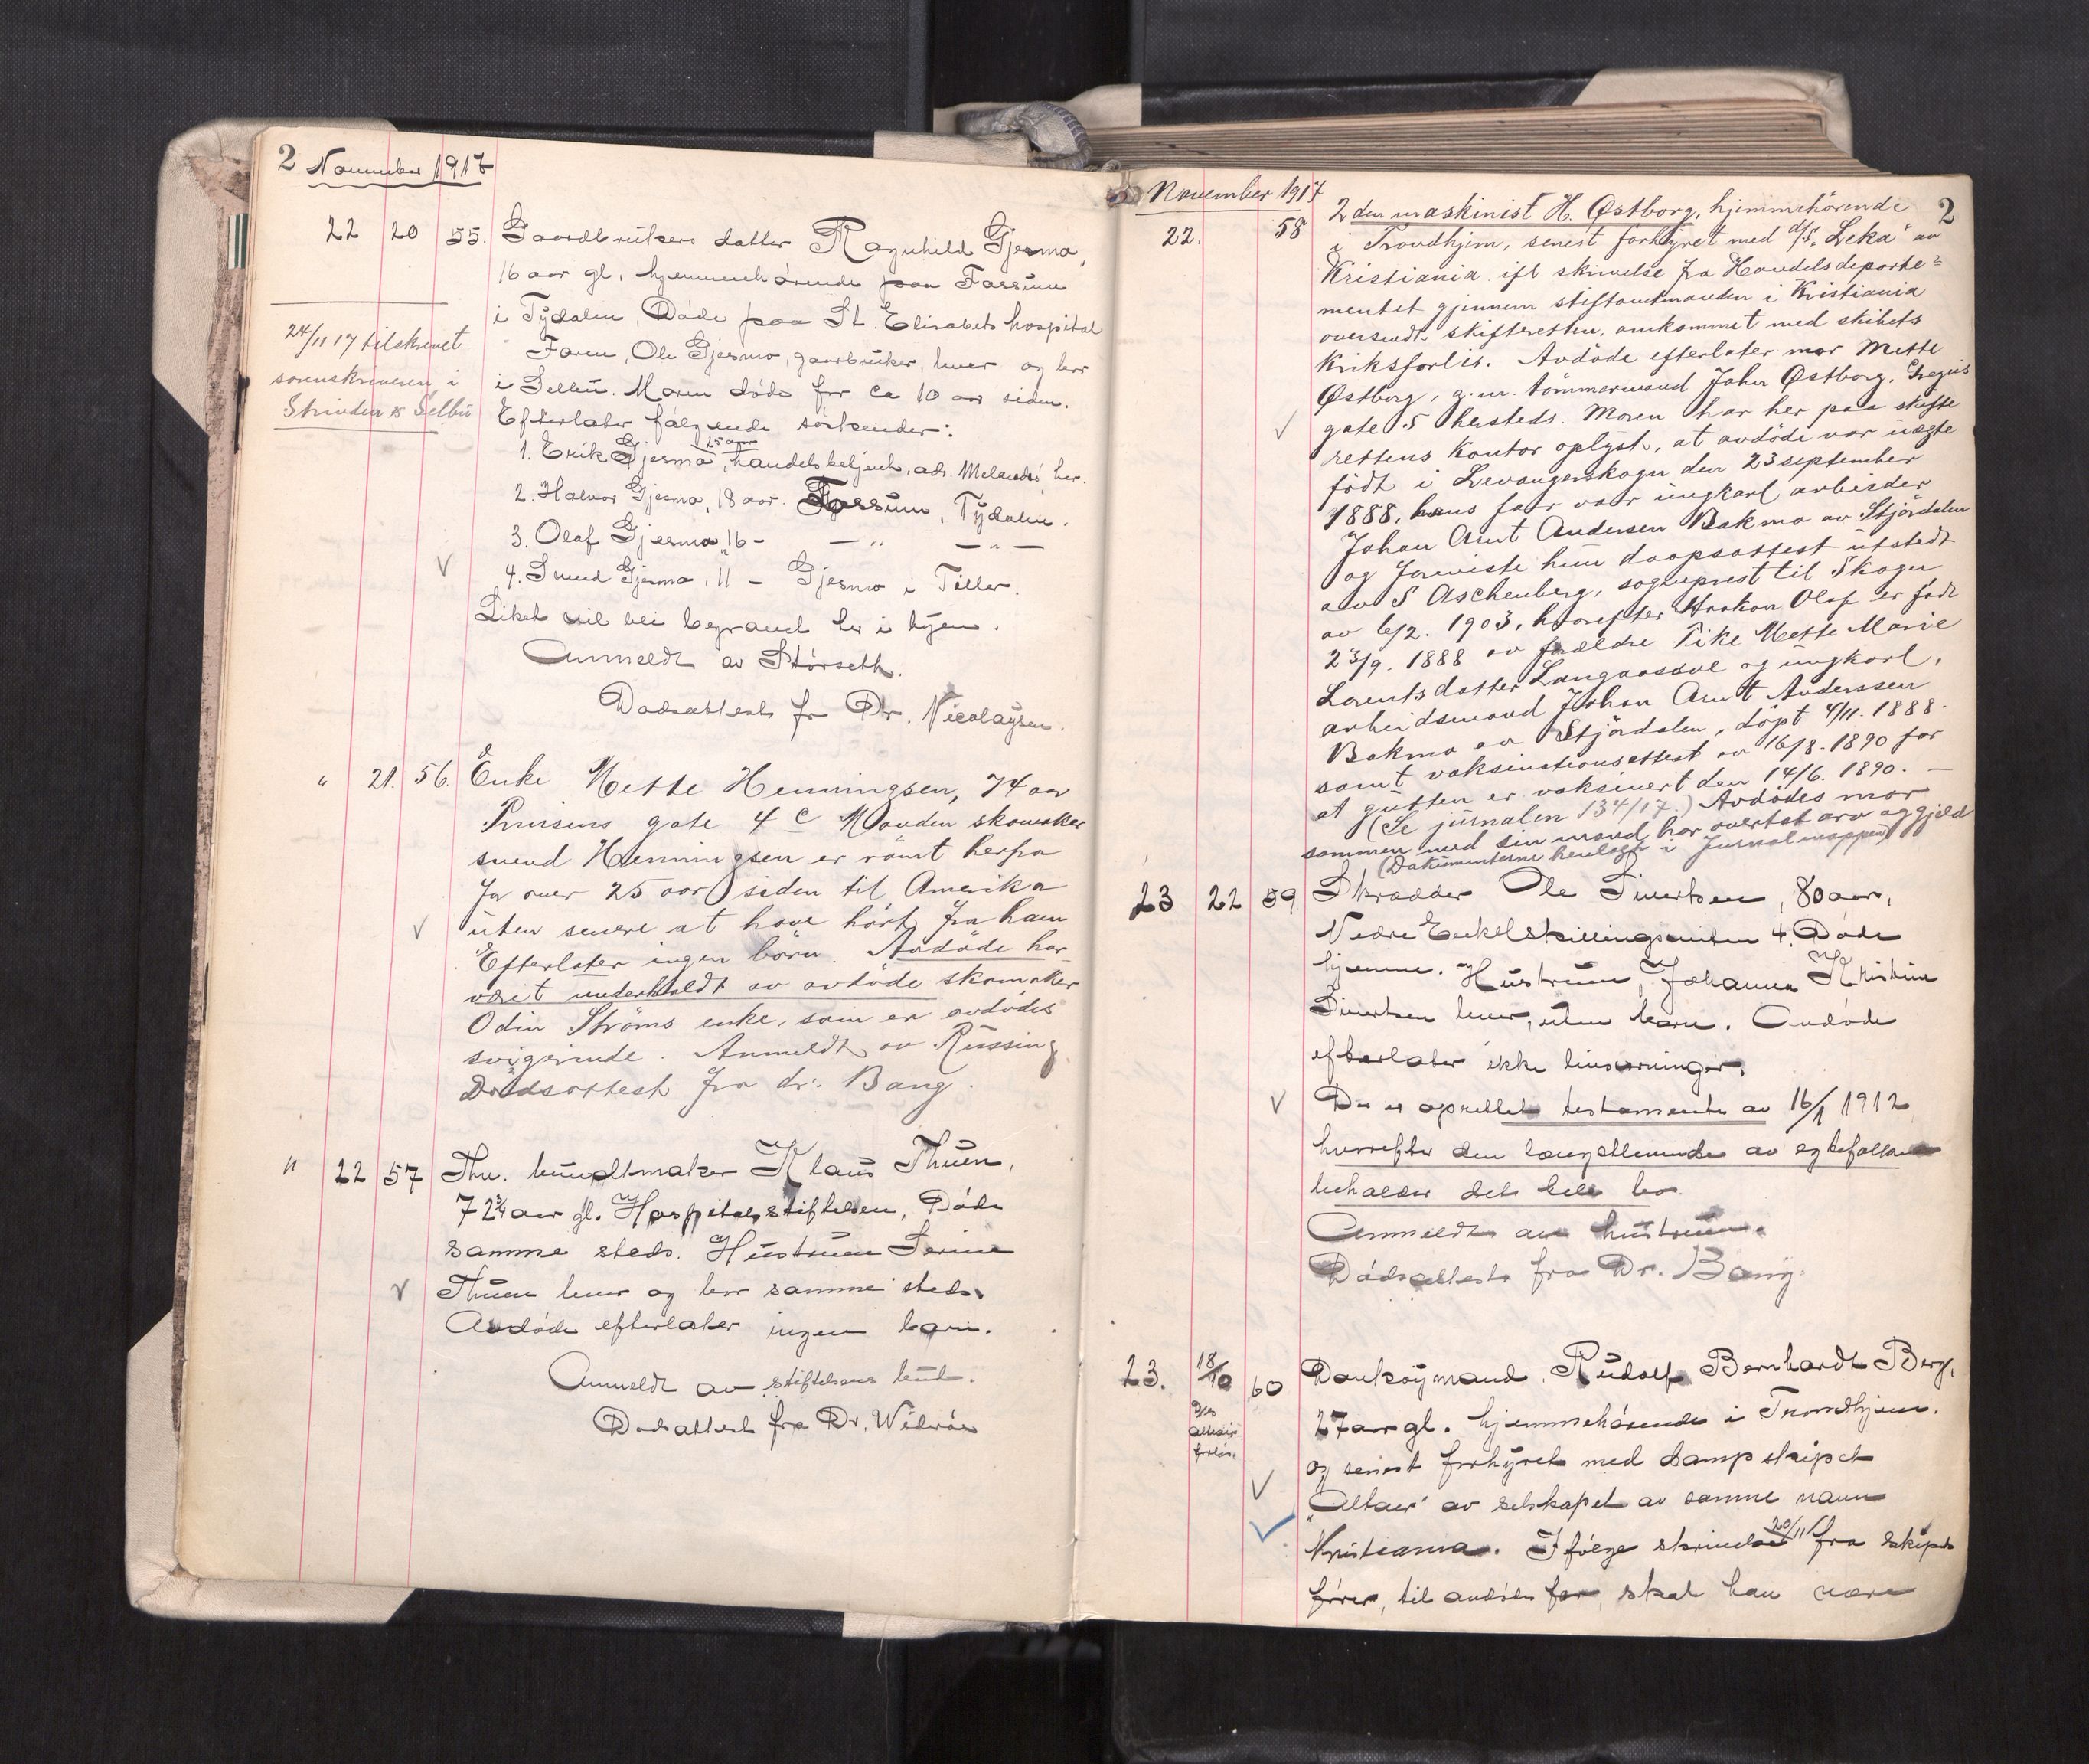 2 November 1917
22 20 55. Gaardbrukers datter Ragnhild Gjesmo,
16 aar gl, hjemmehørende paa Fossum
i Tydalen, Døde paa St. Elisabets hospital
Faren, Ole Gjesmo, gaardbruker, lever og bor
i Selbu. Moren døde for ca 10 aar siden.
Efterlater følgende søskender:
1. Erik Gjesmo, 25 aar, handelsbetjent, ads. her.
2. Halvor Gjesmo, 18 aar. Fossum, Tydalen.
3. Olaf Gjesmo, 16 - — " — " —
4. Gjesmo, 11 - Gjesmo i Tiller.
Liket vil bli begravet her i byen.
Anmeldt av Størseth.
Dødsattest fr Dr. Nicolaysen.
24/11 17 tilskrevet
sorenskriveren i
Strinden & Selbu
" 21. 56. Enke Mette Henningsen, 74 aar
Prinsens gate 4 c Manden skomaker
svend Henningsen er rømt herfra
for over 25 aar siden til Amerika
uten senere at have hørt fra ham
Efterlater ingen børn. Avdøde har
været underholdt av avdøde skomaker
Odin Strøms enke, som er avdødes
svigerinde. Anmeldt av Russing
Dødsattest fra dr. Bang.
" 22 57 Fhv. bundtmaker Klaus Thuen,
72 3/4 aar gl. Hospitalsstiftelsen, Døde
samme steds. Hustruen Serine
Thuen lever og bor samme steds.
Avdøde efterlater ingen barn.
Anmeldt av stiftelsens bud.
Dødsattest fra Dr. Widerøe
November 1917 2
22. 58 2den maskinist H. Østborg, hjemmehørende
i Trondhjem, senest forhyret med d/s "Leka" av
Kristiania ifl skrivelse fra Handelsdeparte=
mentet gjennem stiftamtmanden i Kristiania
oversendt skifteretten, omkommet med skibets
krigsforlis. Avdøde efterlater mor Mette
Østborg, g.m. tømmermand Johan Østborg,
gate 5 hersteds. Moren har her paa skifte
rettens kontor oplyst, at avdøde var uegte
født i Levangerskogn den 23 september
1888, hans far var ungkarl arbeider
Johan Arnt Andersen Bakmo av Stjørdalen
og foreviste hun daapsattest utstedt
av S Aschenberg, sogneprest til Skogn
av 6/2. 1903, hvorefter Haakon Olaf er født
23/9. 1888 av forældre Pike Mette Marie
Lorentsdatter Langaasdal og ungkarl,
arbeidsmand Johan Arnt Anderssen
Bakmo av Stjørdalen, døpt 4/11. 1888.
samt vaksinationsattest av 16/8. 1890 for
at gutten er vaksinert den 14/6. 1890. —
(Se jurnalen 134/17.) Avdødes mor
sammen med sin mand har overtat arv og gjeld
(Dokumenterne henlagt i Jurnalmappen)
23 22 59 Skrædder Ole Sivertsen, 80 aar,
Nedre Enkelskillingsveiten 4. Døde
hjemme. Hustruen, Johanna Kristine
Sivertsen lever, uten barn. Avdøde
efterlater ikke livsarvinger.
Der er oprettet testamente av 16/1 1912
hvorefter den længstlevende av egtefolkene
beholder det hele bo.
Anmeldt av hustruen.
Dødsattest fra Dr. Bang.
23. 18/10 60 Donkeymand, Rudolf Bernhardt Berg,
D/s
Altair
forlis.
27 aar gl. hjemmehørende i Trondhjem.
og senest forhyret med Dampskipet
"Altair" av selskapet av samme navn
Kristiania. Ifølge skrivelse 20/11 fra skips
fører, til avdødes far, skal han være